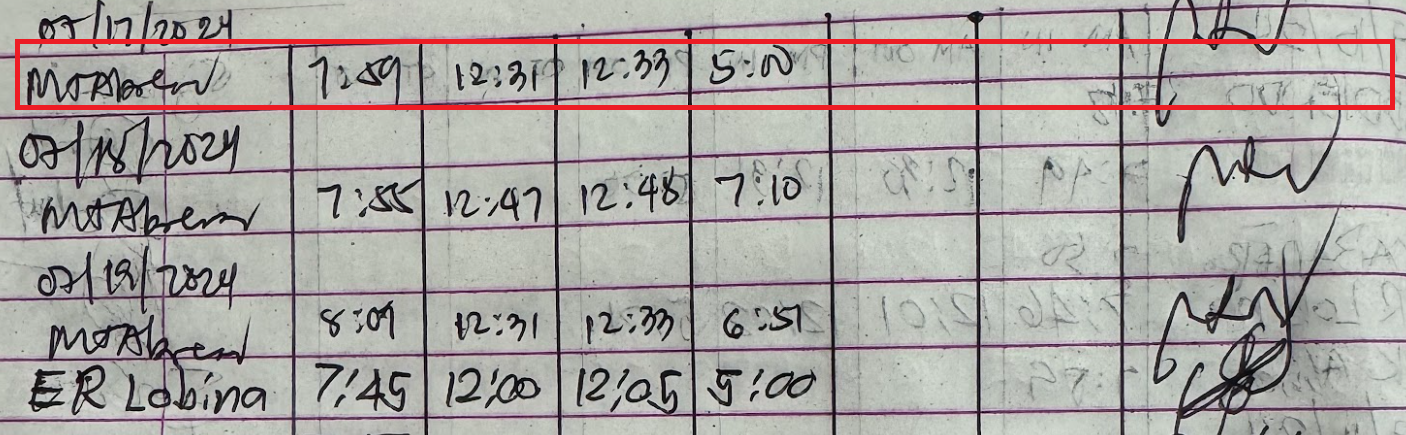 07/17/2024
MJAbrew 7:59 12:31 12:33 5:00
07/18/2024
MJAbrew 7:55 12:47 12:48 7:10
07/19/2024
MJAbrew 8:09 12:31 12:33 6:51
ER Lobina 7:45 12:00 12:05 5:00